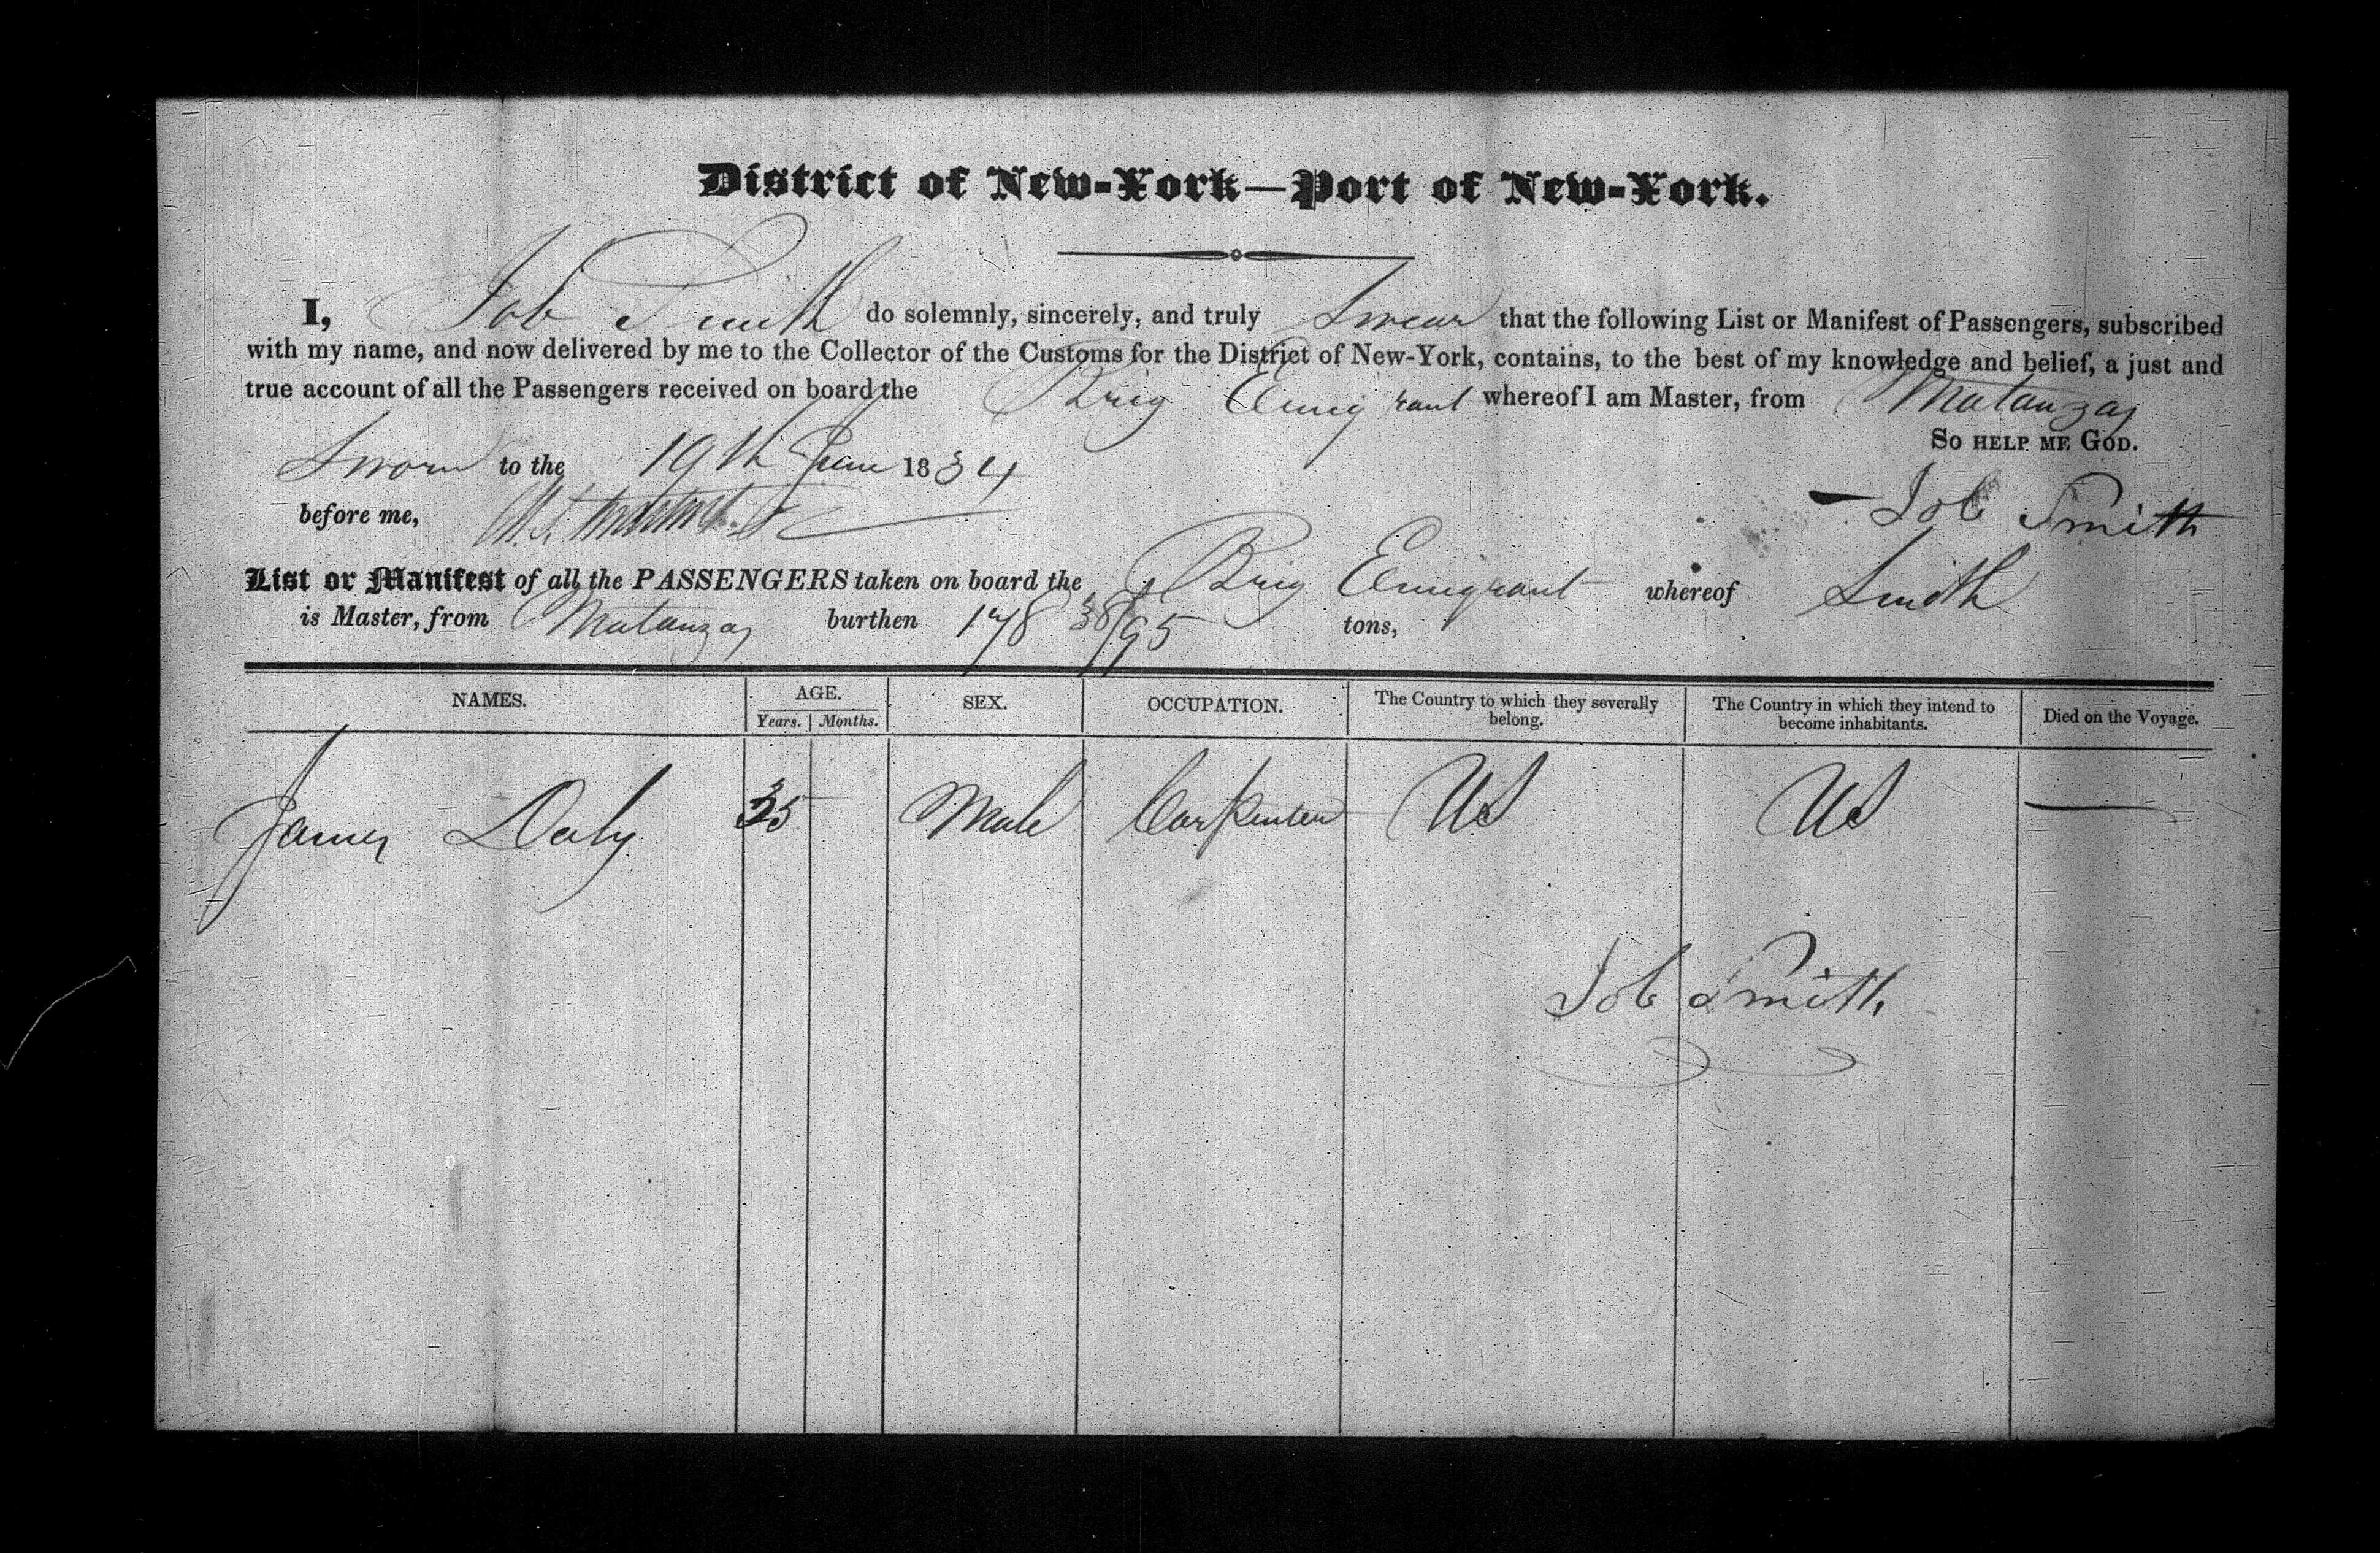 District of New-York—Port of New-York.
I, Job Smith do solemnly, sincerely, and truly Swear that the following List or Manifest of Passengers, subscribed
with my name, and now delivered by me to the Collector of the Customs for the District of New-York, contains, to the best of my knowledge and belief, a just and
true account of all the Passengers received on board the Brig Emigrant whereof I am Master, from Matanzas
So help me God.
Sworn to the 19th June 1834
Job Smith
before me,
List or Manifest of all the PASSENGERS taken on board the Brig Emigrant whereof Smith
is Master, from Matanzas burthen 178 38/95 tons,
NAMES. AGE. SEX. OCCUPATION. The Country to which they severally belong. The Country in which they intend to become inhabitants. Died on the Voyage.
Years. Months.
James Daly 35 Male Carpenter US US —
Job Smith